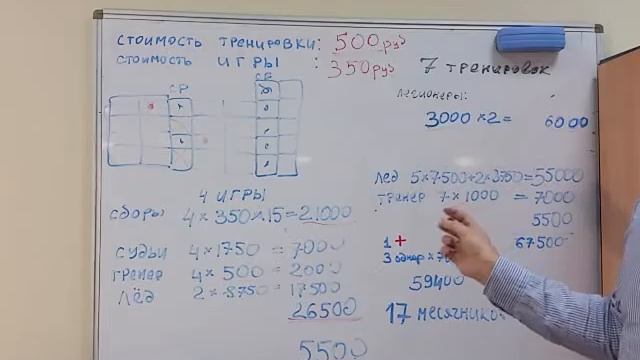 стоимость тренировки: 500 руб
стоимость игры : 350 руб
7 тренировок
СР
СБ
легионеры:
3000 × 2 = 6000
4 игры
сборы 4 × 350 × 15 = 21000
судьи 4 × 1750 = 7000
тренер 4 × 500 = 2000
лёд 2 × 8750 = 17500
26500
5500
лед 5×7500+2×8750=55000
тренер 7 × 1000 = 7000
5500
67500
1 +
59400
17 месячников